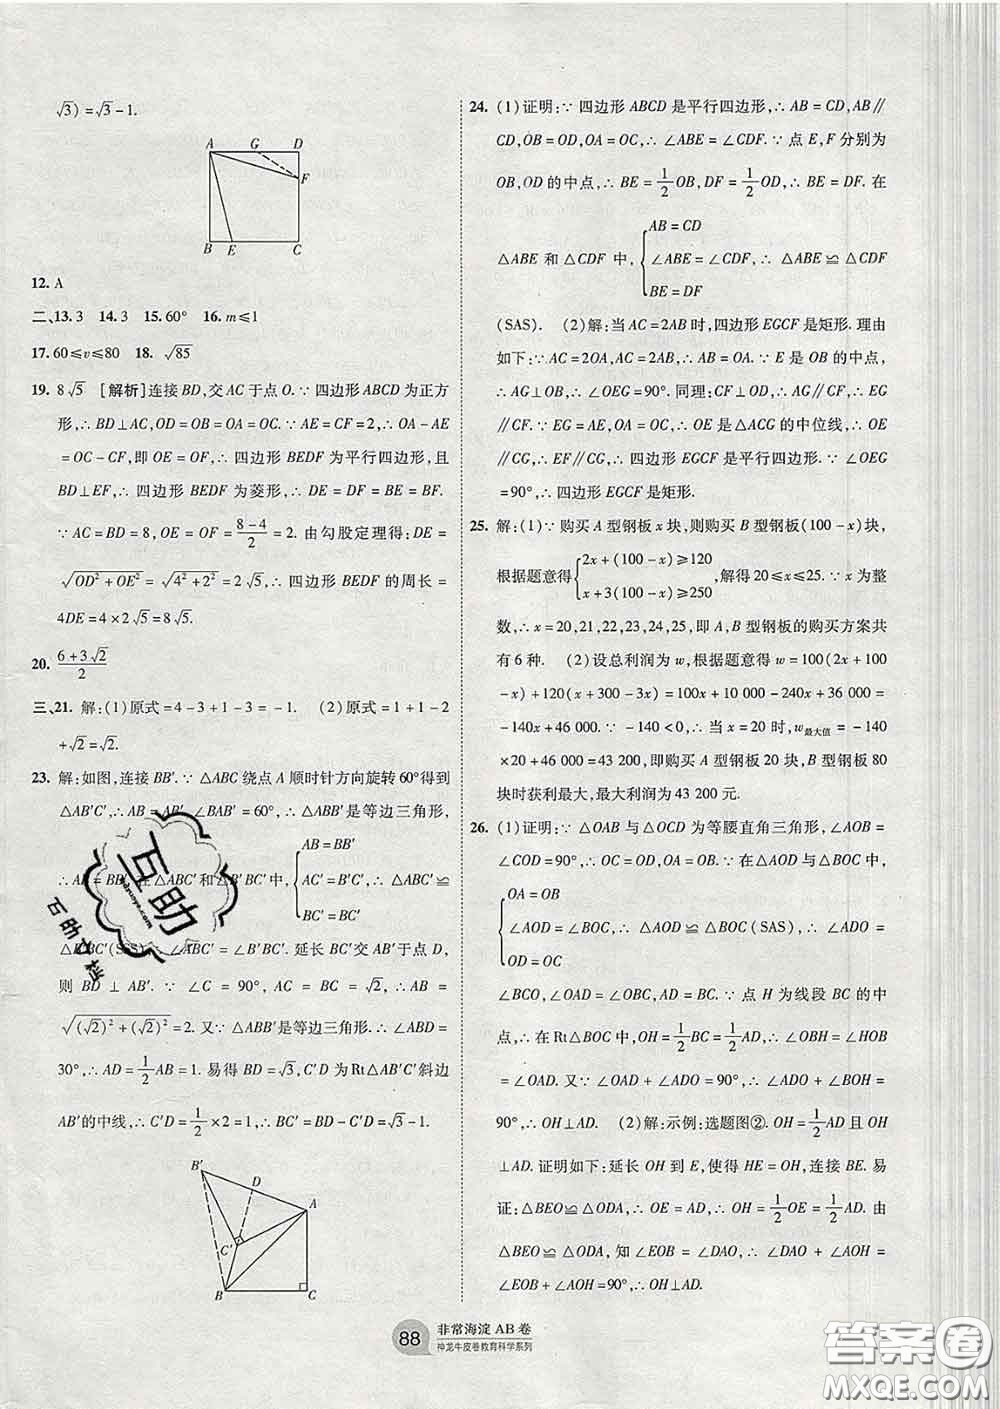 √3) = √3 - 1.
A G D
F
B E C
12. A
二、13. 3  14. 3  15. 60°  16. m≤1
17. 60≤v≤80  18. √85
19. 8√5  [解析]连接 BD,交 AC 于点 O. ∵ 四边形 ABCD 为正方
形,∴ BD⊥AC,OD = OB = OA = OC. ∵ AE = CF = 2,∴ OA - AE
= OC - CF,即 OE = OF,∴ 四边形 BEDF 为平行四边形,且
BD⊥EF,∴ 四边形 BEDF 为菱形,∴ DE = DF = BE = BF.
∵ AC = BD = 8,OE = OF = (8-4)/2 = 2. 由勾股定理得:DE =
√(OD² + OE²) = √(4² + 2²) = 2√5,∴ 四边形 BEDF 的周长 =
4DE = 4×2√5 = 8√5.
20. (6+3√2)/2
三、21. 解:(1)原式 = 4 - 3 + 1 - 3 = -1.  (2)原式 = 1 + 1 - 2
+√2 = √2.
23. 解:如图,连接 BB′. ∵ △ABC 绕点 A 顺时针方向旋转 60°得到
△AB′C′,∴ AB = AB′,∠BAB′ = 60°,∴ △ABB′是等边三角形,
∴ AB = BB′,在△ABC′和△B′BC′中,{AB = BB′ AC′ = B′C′, BC′ = BC′ ∴ △ABC′≌
△B′BC′(SSS),∴ ∠ABC′ = ∠B′BC′. 延长 BC′交 AB′于点 D,
则 BD ⊥ AB′. ∵ ∠C = 90°, AC = BC = √2,∴ AB =
√((√2)² + (√2)²) = 2. 又∵ △ABB′是等边三角形,∴ ∠ABD =
30°,∴ AD = 1/2 AB = 1. 易得 BD = √3,C′D 为 Rt△AB′C′斜边
AB′的中线,∴ C′D = 1/2 ×2 = 1,∴ BC′ = BD - C′D = √3 - 1.
B′ D A
C′
B C
24. (1)证明:∵ 四边形 ABCD 是平行四边形,∴ AB = CD,AB∥
CD,OB = OD,OA = OC,∴ ∠ABE = ∠CDF. ∵ 点 E,F 分别为
OB,OD 的中点,∴ BE = 1/2 OB,DF = 1/2 OD,∴ BE = DF. 在
△ABE 和 △CDF 中,{AB = CD ∠ABE = ∠CDF, BE = DF ∴ △ABE ≌ △CDF
(SAS).  (2)解:当 AC = 2AB 时,四边形 EGCF 是矩形. 理由
如下:∵ AC = 2OA,AC = 2AB,∴ AB = OA. ∵ E 是 OB 的中点,
∴ AG⊥OB,∴ ∠OEG = 90°. 同理:CF⊥OD,∴ AG∥CF,∴ EG
∥CF. ∵ EG = AE,OA = OC,∴ OE 是△ACG 的中位线,∴ OE
∥CG,∴ EF∥CG,∴ 四边形 EGCF 是平行四边形. ∵ ∠OEG
= 90°,∴ 四边形 EGCF 是矩形.
25. 解:(1)∵ 购买 A 型钢板 x 块,则购买 B 型钢板(100 - x)块,
根据题意得{2x + (100 - x)≥120 x + 3(100 - x)≥250,解得 20≤x≤25. ∵ x 为整
数,∴ x = 20,21,22,23,24,25,即 A,B 型钢板的购买方案共
有 6 种.  (2)设总利润为 w,根据题意得 w = 100(2x + 100
- x) + 120(x + 300 - 3x) = 100x + 10 000 - 240x + 36 000 =
- 140x + 46 000. ∵ - 140 < 0,∴ 当 x = 20 时,w最大值 = - 140
×20 + 46 000 = 43 200,即购买 A 型钢板 20 块,B 型钢板 80
块时获利最大,最大利润为 43 200 元.
26. (1)证明:∵ △OAB 与△OCD 为等腰直角三角形,∠AOB =
∠COD = 90°,∴ OC = OD,OA = OB. ∵ 在△AOD 与△BOC 中,
{OA = OB ∠AOD = ∠BOC, OD = OC ∴ △AOD ≌ △BOC(SAS),∴ ∠ADO =
∠BCO,∠OAD = ∠OBC,AD = BC. ∵ 点 H 为线段 BC 的中
点,∴ 在 Rt△BOC 中,OH = 1/2 BC = 1/2 AD,∴ ∠OBH = ∠HOB
= ∠OAD. 又∵ ∠OAD + ∠ADO = 90°,∴ ∠ADO + ∠BOH =
90°,∴ OH⊥AD.  (2)解:示例:选题图②. OH = 1/2 AD 且 OH
⊥AD. 证明如下:延长 OH 到 E,使得 HE = OH,连接 BE. 易
证:△BEO≌△ODA,∴ OE = AD,∴ OH = 1/2 OE = 1/2 AD. 由
△BEO ≌ △ODA,知 ∠EOB = ∠DAO,∴ ∠DAO + ∠AOH =
∠EOB + ∠AOH = 90°,∴ OH⊥AD.
88
非常海淀 AB 卷
神龙牛皮卷教育科学系列
互助
答案圈
MXQE.COM